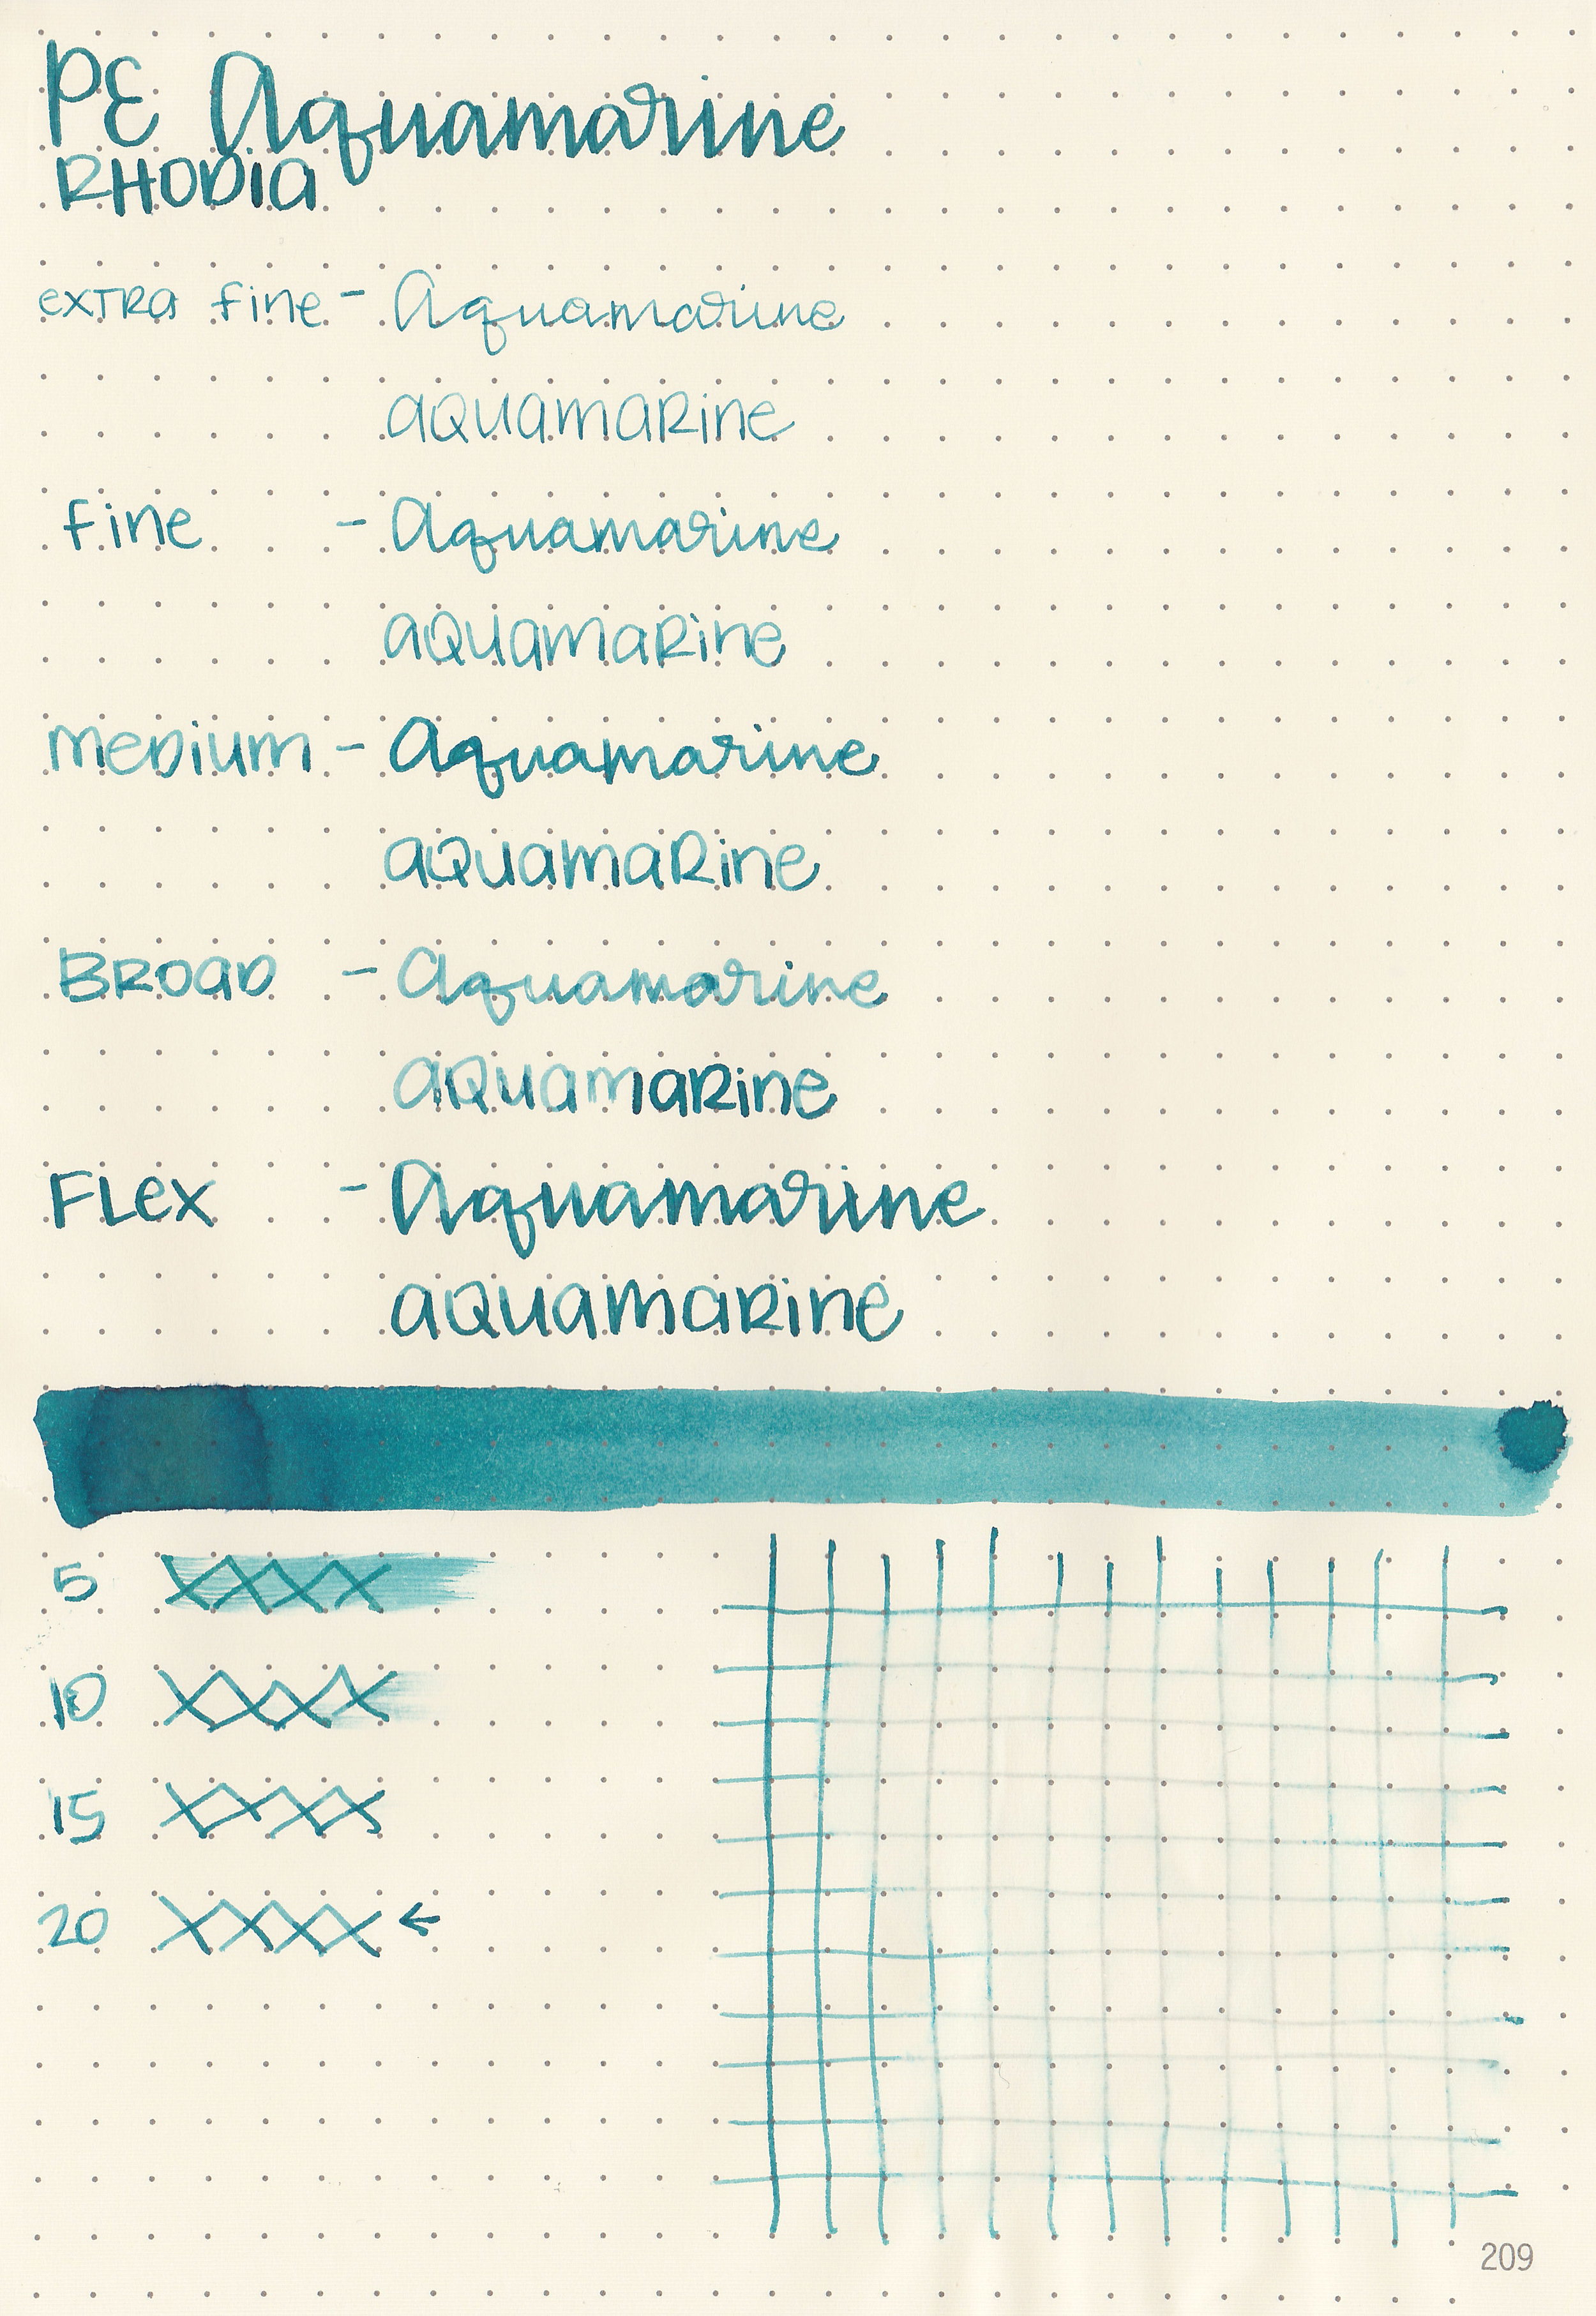 PE Aquamarine
RHODIA
extra fine - Aquamarine
aquamarine
fine - Aquamarine
aquamarine
medium - Aquamarine
aquamarine
Broad - Aquamarine
aquamarine
Flex - Aquamarine
aquamarine
5 XXXX
10 XXXX
15 XXXX
20 XXXX ←
209